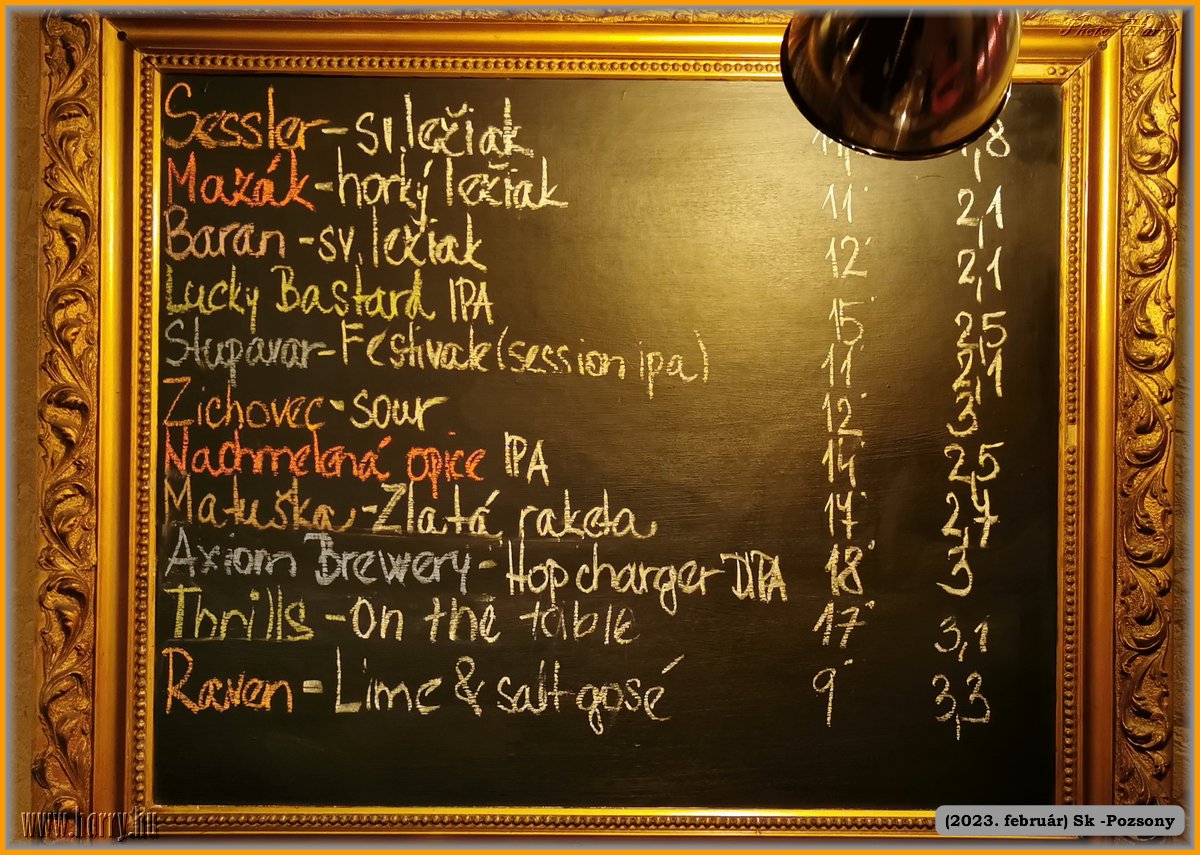 Photo: Harry
Sessler - sv. ležiak ,8
Mazák - horký ležiak 11° 2,1
Baran - sv. ležiak 12° 2,1
Lucky Bastard IPA 15° 2,5
Stupavar - Festivale (session ipa) 11° 2,1
Zichovec - sour 12° 3
Nachmelená opice IPA 14° 2,5
Matuška - Zlatá raketa 17° 2,7
Axiom Brewery - Hop charger DIPA 18° 3
Thrills - On the table 17° 3,1
Raven - Lime & salt gosé 9° 3,3
www.horry.hu
(2023. február) Sk -Pozsony